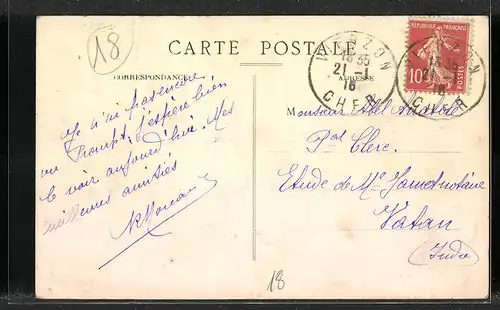 18
CARTE POSTALE
CORRESPONDANCE
ADRESSE
VIERZON
18 35
21 -1
16
CHER
REPUBLIQUE FRANÇAISE
10
POSTES
Je n'ai pas encore
vu j'espère bien
le voir aujourd'hui. Mes
meilleures amitiés
Monsieur
Pal Clerc
Etude de Me notaire
Vatan
(Indre)
18